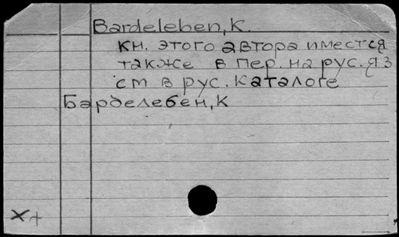 Bardeleben, K.
кн. этого автора имеется
также в пер. на рус. яз
см в рус. каталоге
Барделебен, К